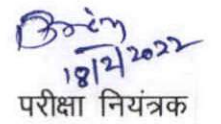 18/2/2022
परीक्षा नियंत्रक